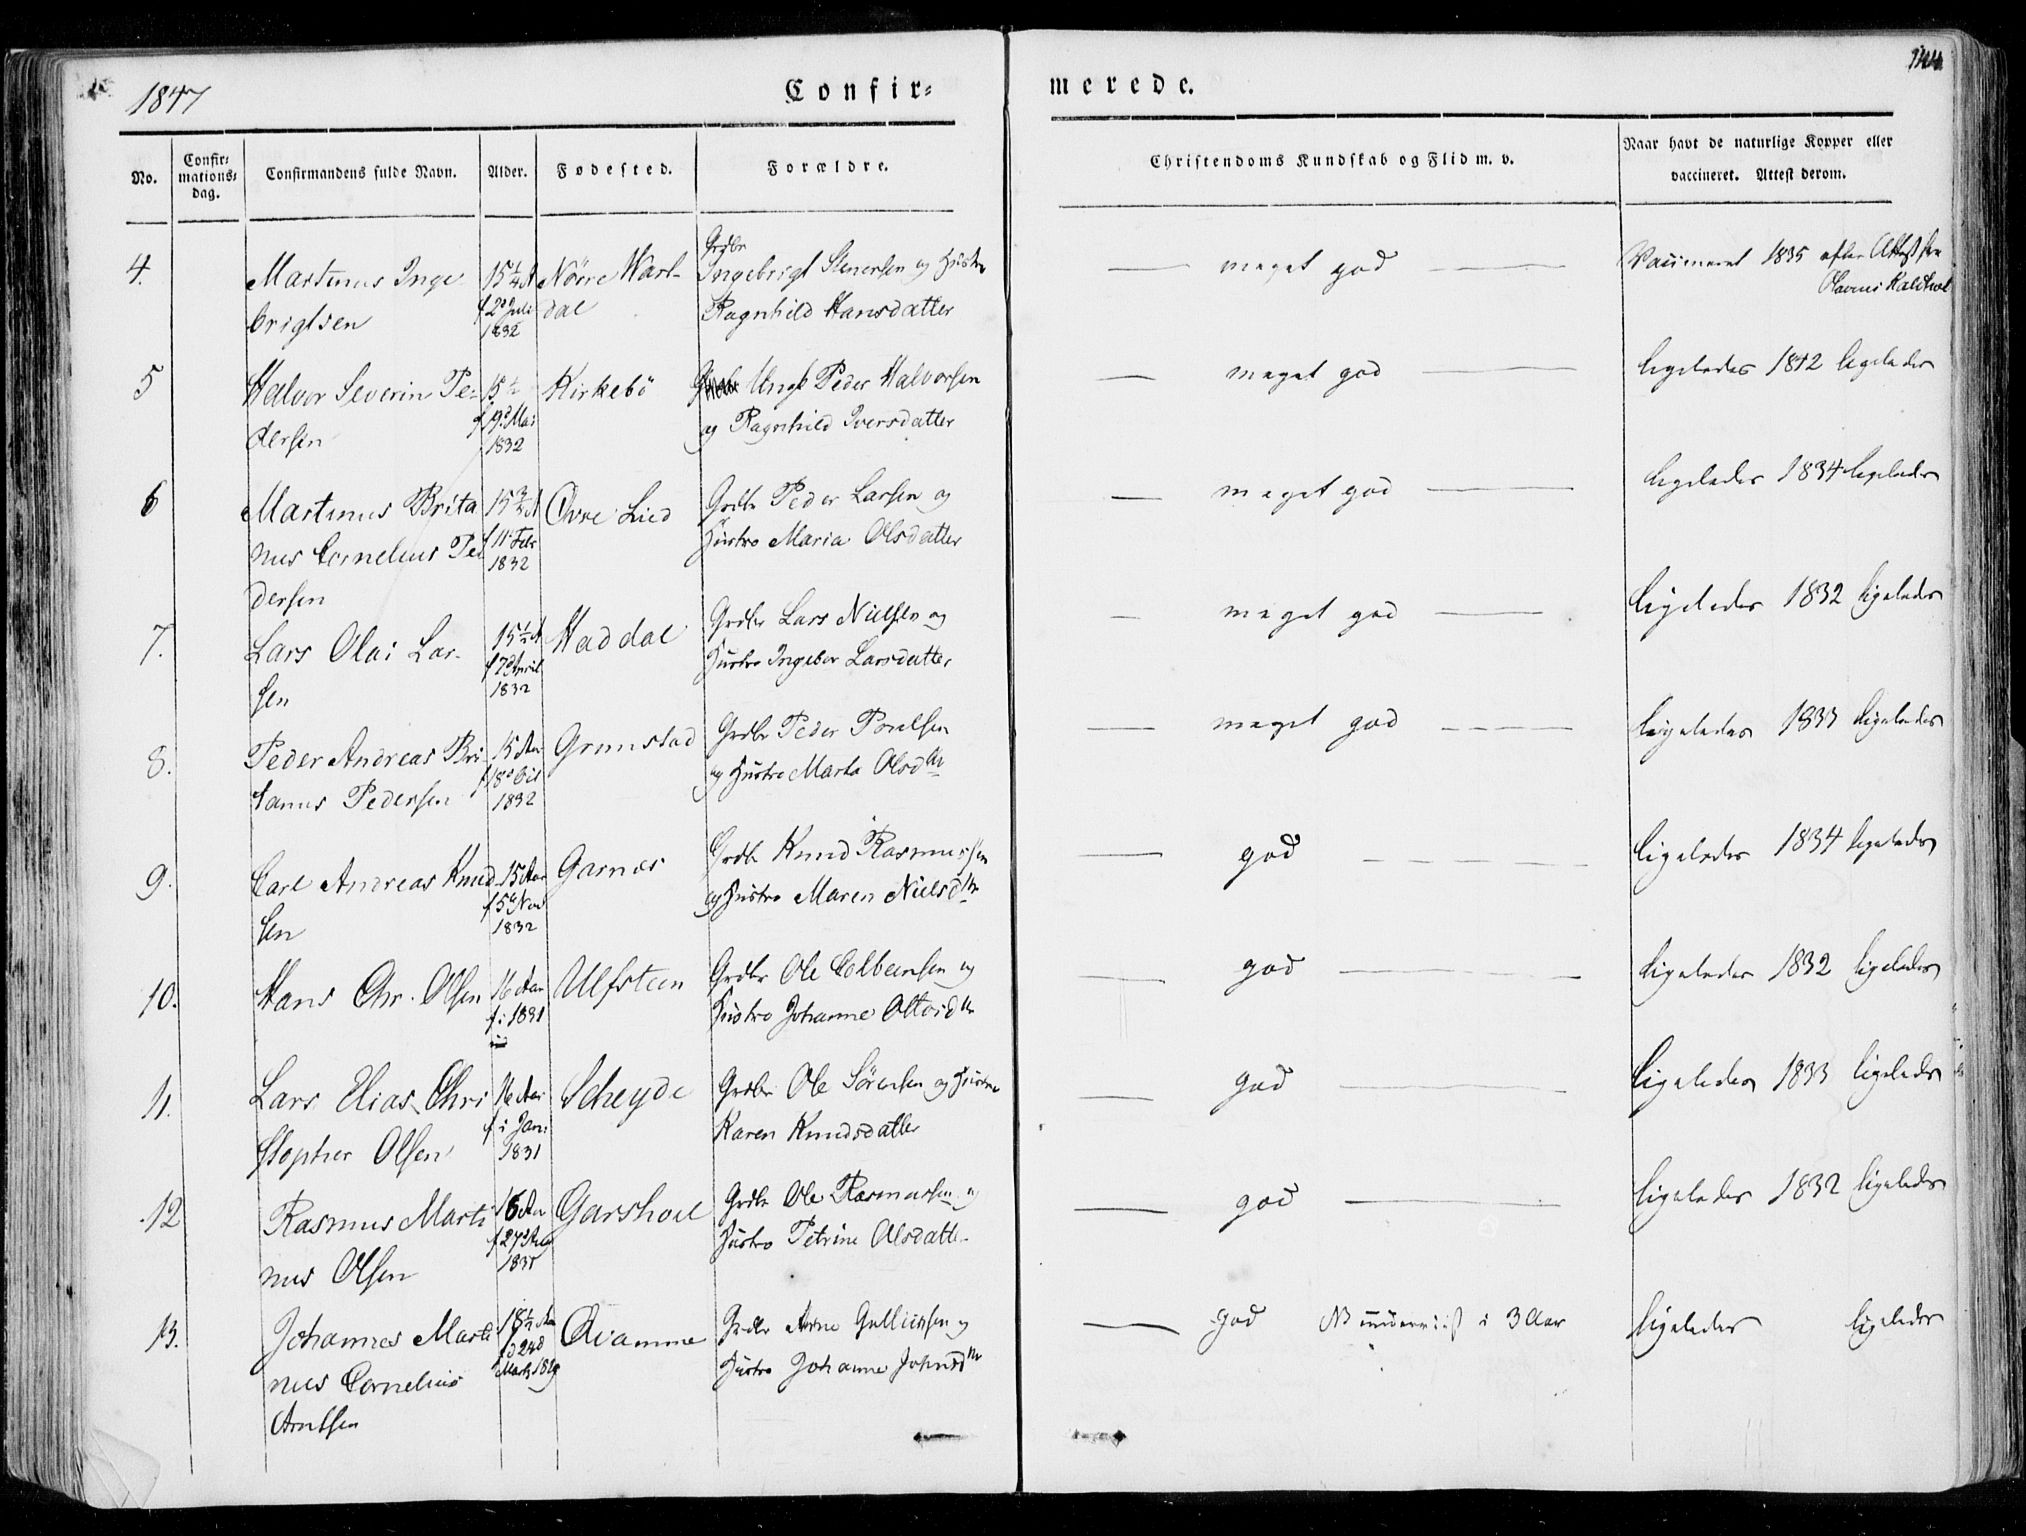 1847
Confir=
merede.
144
No.
Confir=
mations=
dag.
Confirmandens fulde Navn.
Alder.
Fødested.
Forældre.
Christendoms Kundskab og Flid m. v.
Naar havt de naturlige Kopper eller
vaccineret. Attest derom.
4.
Martinus Inge
brigtsen
15 1/4 A
f 29 Juli
1832
Nörre Vart-
dal
Grdbr
Ingebrigt Stenersen og Hustro
Ragnhild Hansdatter
meget god
Vaccineret 1835 efter Attest fra
5
Halvor Severin Pe-
dersen
15 1/2
f 19d Mai
1832
Kirkebö
Ungk Peder Halvorsen
og Ragnhild Iversdatter
meget god
ligeledes 1842 ligeledes
6
Martinus Brita
nus Cornelius Pe
dersen
15 3/4 A
f 11 Febr
1832
Övre Lied
Grdbr Peder Larsen og
Hustro Maria Olsdatter
meget god
ligeledes 1834 ligeledes
7.
Lars Olai Lar-
sen
15 1/2 A
f 7d April
1832
Haddal
Grdbr Lars Nielsen og
Hustro Ingebor Larsdatter
meget god
ligeledes 1832 ligeledes
8.
Peder Andreas Bri
tanus Pedersen
15 Aar
f 18d Oct
1832
Grimstad
Grdbr Peder Povelsen
og Hustro Marta Olsdtr
meget god
ligeledes 1833 ligeledes
9.
Carl Andreas Knud
sen
15 Aar
f 5d Nov
1832
Garnes
Grdbr Knud Rasmussen
og Hustro Maren Nielsdtr
god
ligeledes 1834 ligeledes
10.
Hans Chr. Olsen
16 Aar
f. i 1831
Ulfsteen
Grdbr Ole Colbensen og
Hustro Johanne Ottosdtr
god
ligeledes 1832 ligeledes
11.
Lars Elias Chri
stopher Olsen
16 Aar
f i Jan
1831
Scheyde
Grdbr Ole Sörensen og Hustro
Karen Knudsdatter
god
ligeledes 1833 ligeledes
12
Rasmus Marti
nus Olsen
16 Aar
1831
Garshoel
Grdbr Ole Rasmussen og
Hustro Petrine Olsdatter
god
ligeledes 1832 ligeledes
13.
Johannes Marti
nus Cornelius
Arntsen
18 1/2 Aar
f 24d
Marts 1829
Qvamme
Grdbr Arne
Hustro Johanne Johnsdtr
god NB underviist i 3 Aar
ligeledes ligeledes